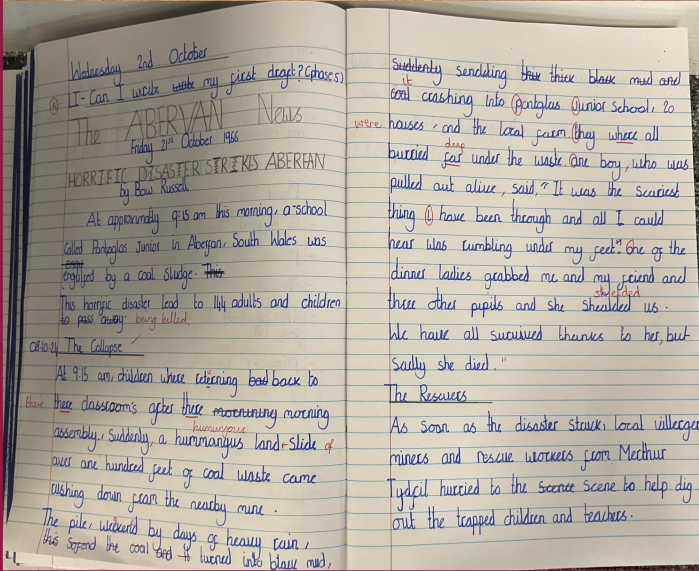 Wednesday 2nd October
LI- Can I write write my first draft? (phase 5)
The ABERVAN News
Friday 21st October 1966
HORRIFIC DISASTER STRIKES ABERFAN
by Bow Russell
At approximatly 9:15 am this morning, a school
called Pantaglas Junior in Aberfan, South Wales was
engulfed by a coal sludge. This
This horrific disaster lead to 144 adults and children
to pass away. being killed.
08.10.24 The Collapse
At 9:15 am, children where reterning bad back to
their there classroom's after there mornining morning
humungous
assembly. Suddenly, a hummangus land-slide of
over one hundred feet of coal waste came
rushing down from the nearby mine.
The pile, weakend by days of heavy rain,
this the coal and it turned into black mud,
Suddenly sendding this thick black mud and
it
coal crashing into Pontglas Junior school, 20
were houses, and the local farm. they where all
deep
burried far under the waste. One boy, who was
pulled out alive, said, "It was the scariest
thing I have been through and all I could
hear was rumbling under my feet." One of the
dinner ladies grabbed me and my friend and
shielded
three other pupils and she shealded us.
We have all survived thanks to her, but
sadly she died."
The Rescuers
As soon as the disaster struck, local villerger
miners and rescue workers from Merthur
Tydfil hurried to the Scence scene to help dig
out the trapped children and teachers.